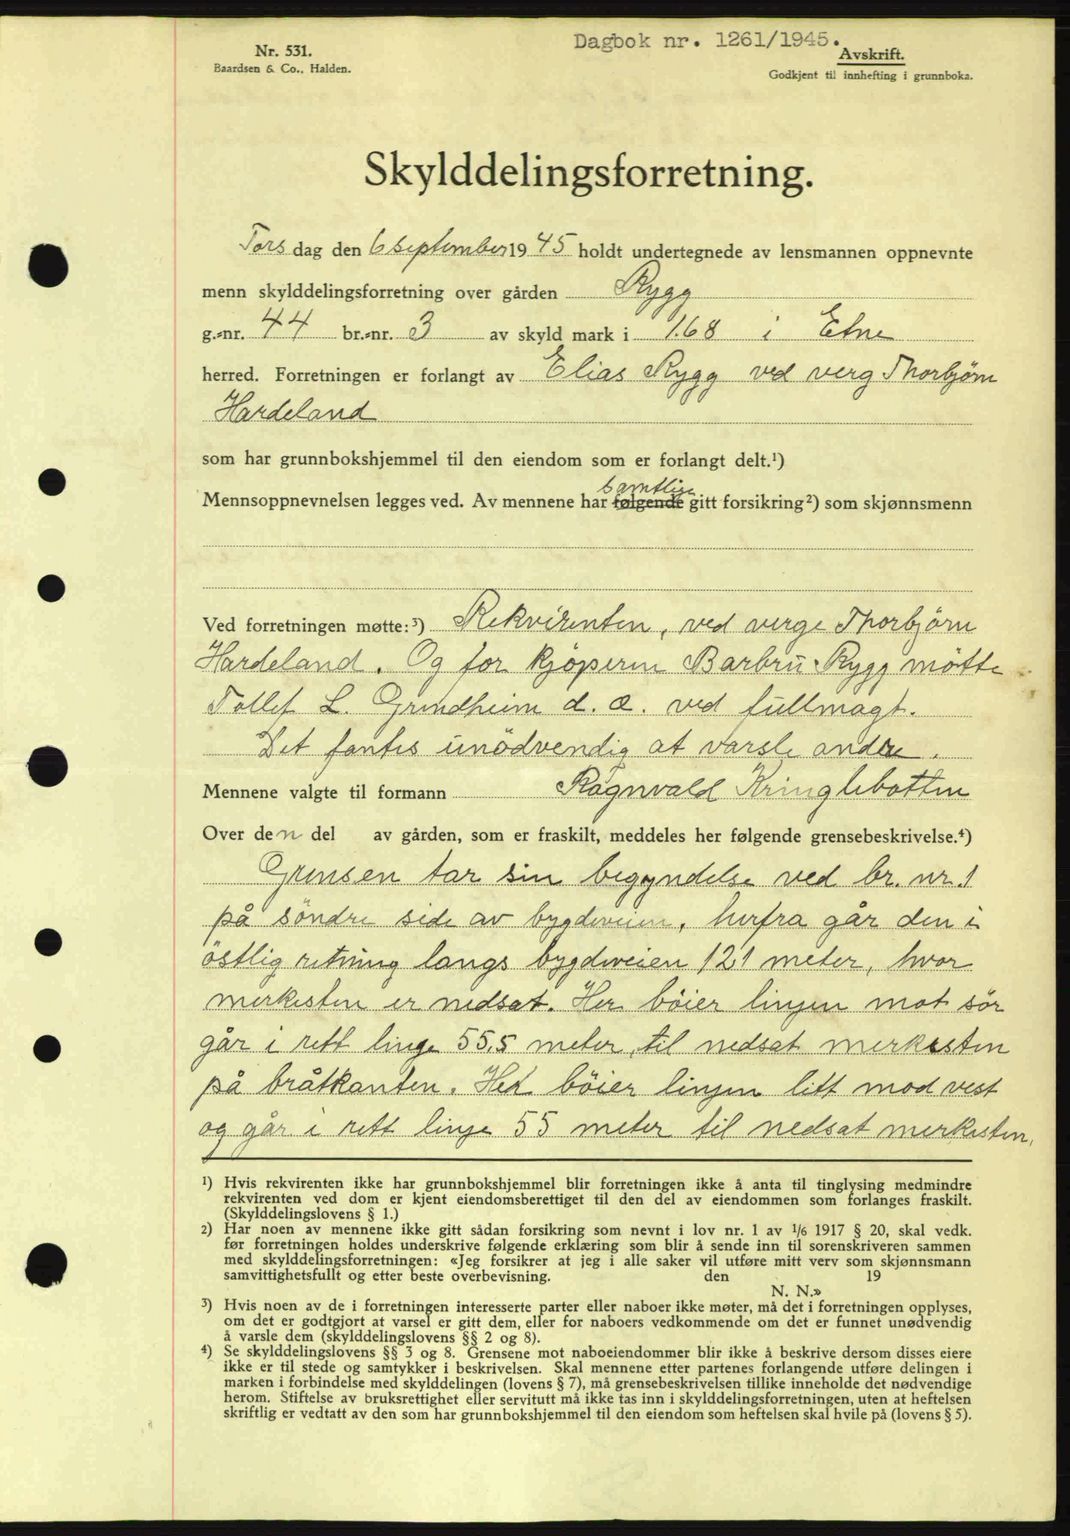 Dagbok nr. 1261/1945.
Nr. 531.
Baardsen & Co., Halden.
Avskrift.
Godkjent til innhefting i grunnboka.
Skylddelingsforretning.
Tors dag den 6 september 19 45 holdt undertegnede av lensmannen oppnevnte
menn skylddelingsforretning over gården Rygg
g.-nr. 44 br.-nr. 3 av skyld mark i 1.68 i Etne
herred. Forretningen er forlangt av Elias Rygg ved verg Thorbjörn
Hardeland
som har grunnbokshjemmel til den eiendom som er forlangt delt.¹)
samtlige
Mennsoppnevnelsen legges ved. Av mennene har følgende gitt forsikring²) som skjønnsmenn
Ved forretningen møtte:³) Rekvirenten, ved verge Thorbjörn
Hardeland. Og for kjöperen Barbru Rygg mötte
Tollef L. Grindheim d. e. ved fullmagt.
Det fantes unödvendig at varsle andre.
Mennene valgte til formann Ragnvald Kringlebotten
Over den del av gården, som er fraskilt, meddeles her følgende grensebeskrivelse.⁴)
Grensen tar sin begyndelse ved br. nr. 1
på söndre side av bygdeveien, herfra går den i
östlig retning langs bygdeveien 121 meter, hvor
merkesten er nedsat. Her böier linjen mot sör
går i rett linje 55,5 meter, til nedsat merkesten
på bråtkanten. Her böier linjen litt mod vest
og går i rett linje 55 meter til nedsat merkesten,
¹) Hvis rekvirenten ikke har grunnbokshjemmel blir forretningen ikke å anta til tinglysing medmindre
rekvirenten ved dom er kjent eiendomsberettiget til den del av eiendommen som forlanges fraskilt.
(Skylddelingslovens § 1.)
²) Har noen av mennene ikke gitt sådan forsikring som nevnt i lov nr. 1 av 1/6 1917 § 20, skal vedk.
før forretningen holdes underskrive følgende erklæring som blir å sende inn til sorenskriveren sammen
med skylddelingsforretningen: «Jeg forsikrer at jeg i alle saker vil utføre mitt verv som skjønnsmann
samvittighetsfullt og etter beste overbevisning. den 19
N. N.»
³) Hvis noen av de i forretningen interesserte parter eller naboer ikke møter, må det i forretningen opplyses,
om det er godtgjort at varsel er gitt dem, eller for naboers vedkommende om det er funnet unødvendig
å varsle dem (skylddelingslovens §§ 2 og 8).
⁴) Se skylddelingslovens §§ 3 og 8. Grensene mot naboeiendommer blir ikke å beskrive dersom disses eiere
ikke er til stede og samtykker i beskrivelsen. Skal mennene etter partenes forlangende utføre delingen i
marken i forbindelse med skylddelingen (lovens § 7), må grensebeskrivelsen tillike inneholde det nødvendige
herom. Stiftelse av bruksrettighet eller servitutt må ikke tas inn i skylddelingsforretningen, uten at heftelsen
skriftlig er vedtatt av den som har grunnbokshjemmel til den eiendom som heftelsen skal hvile på (lovens § 5).